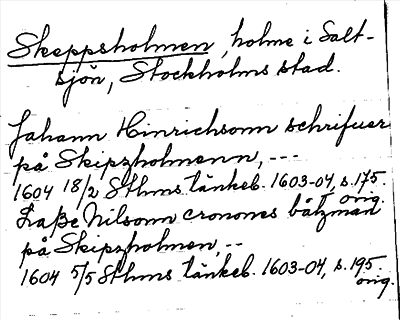 Skeppsholmen, holme i Salt-
sjön, Stockholms stad.
Johann Hinrichsonn schrifuer
på Skipzholmenn, ---
1604 18/2 Sthms tänkeb. 1603-04, s. 175.
orig.
Laße Nilsonn cronones båtzman
på Skipzholmen, --
1604 5/5 Sthms tänkeb. 1603-04, s. 195
orig.